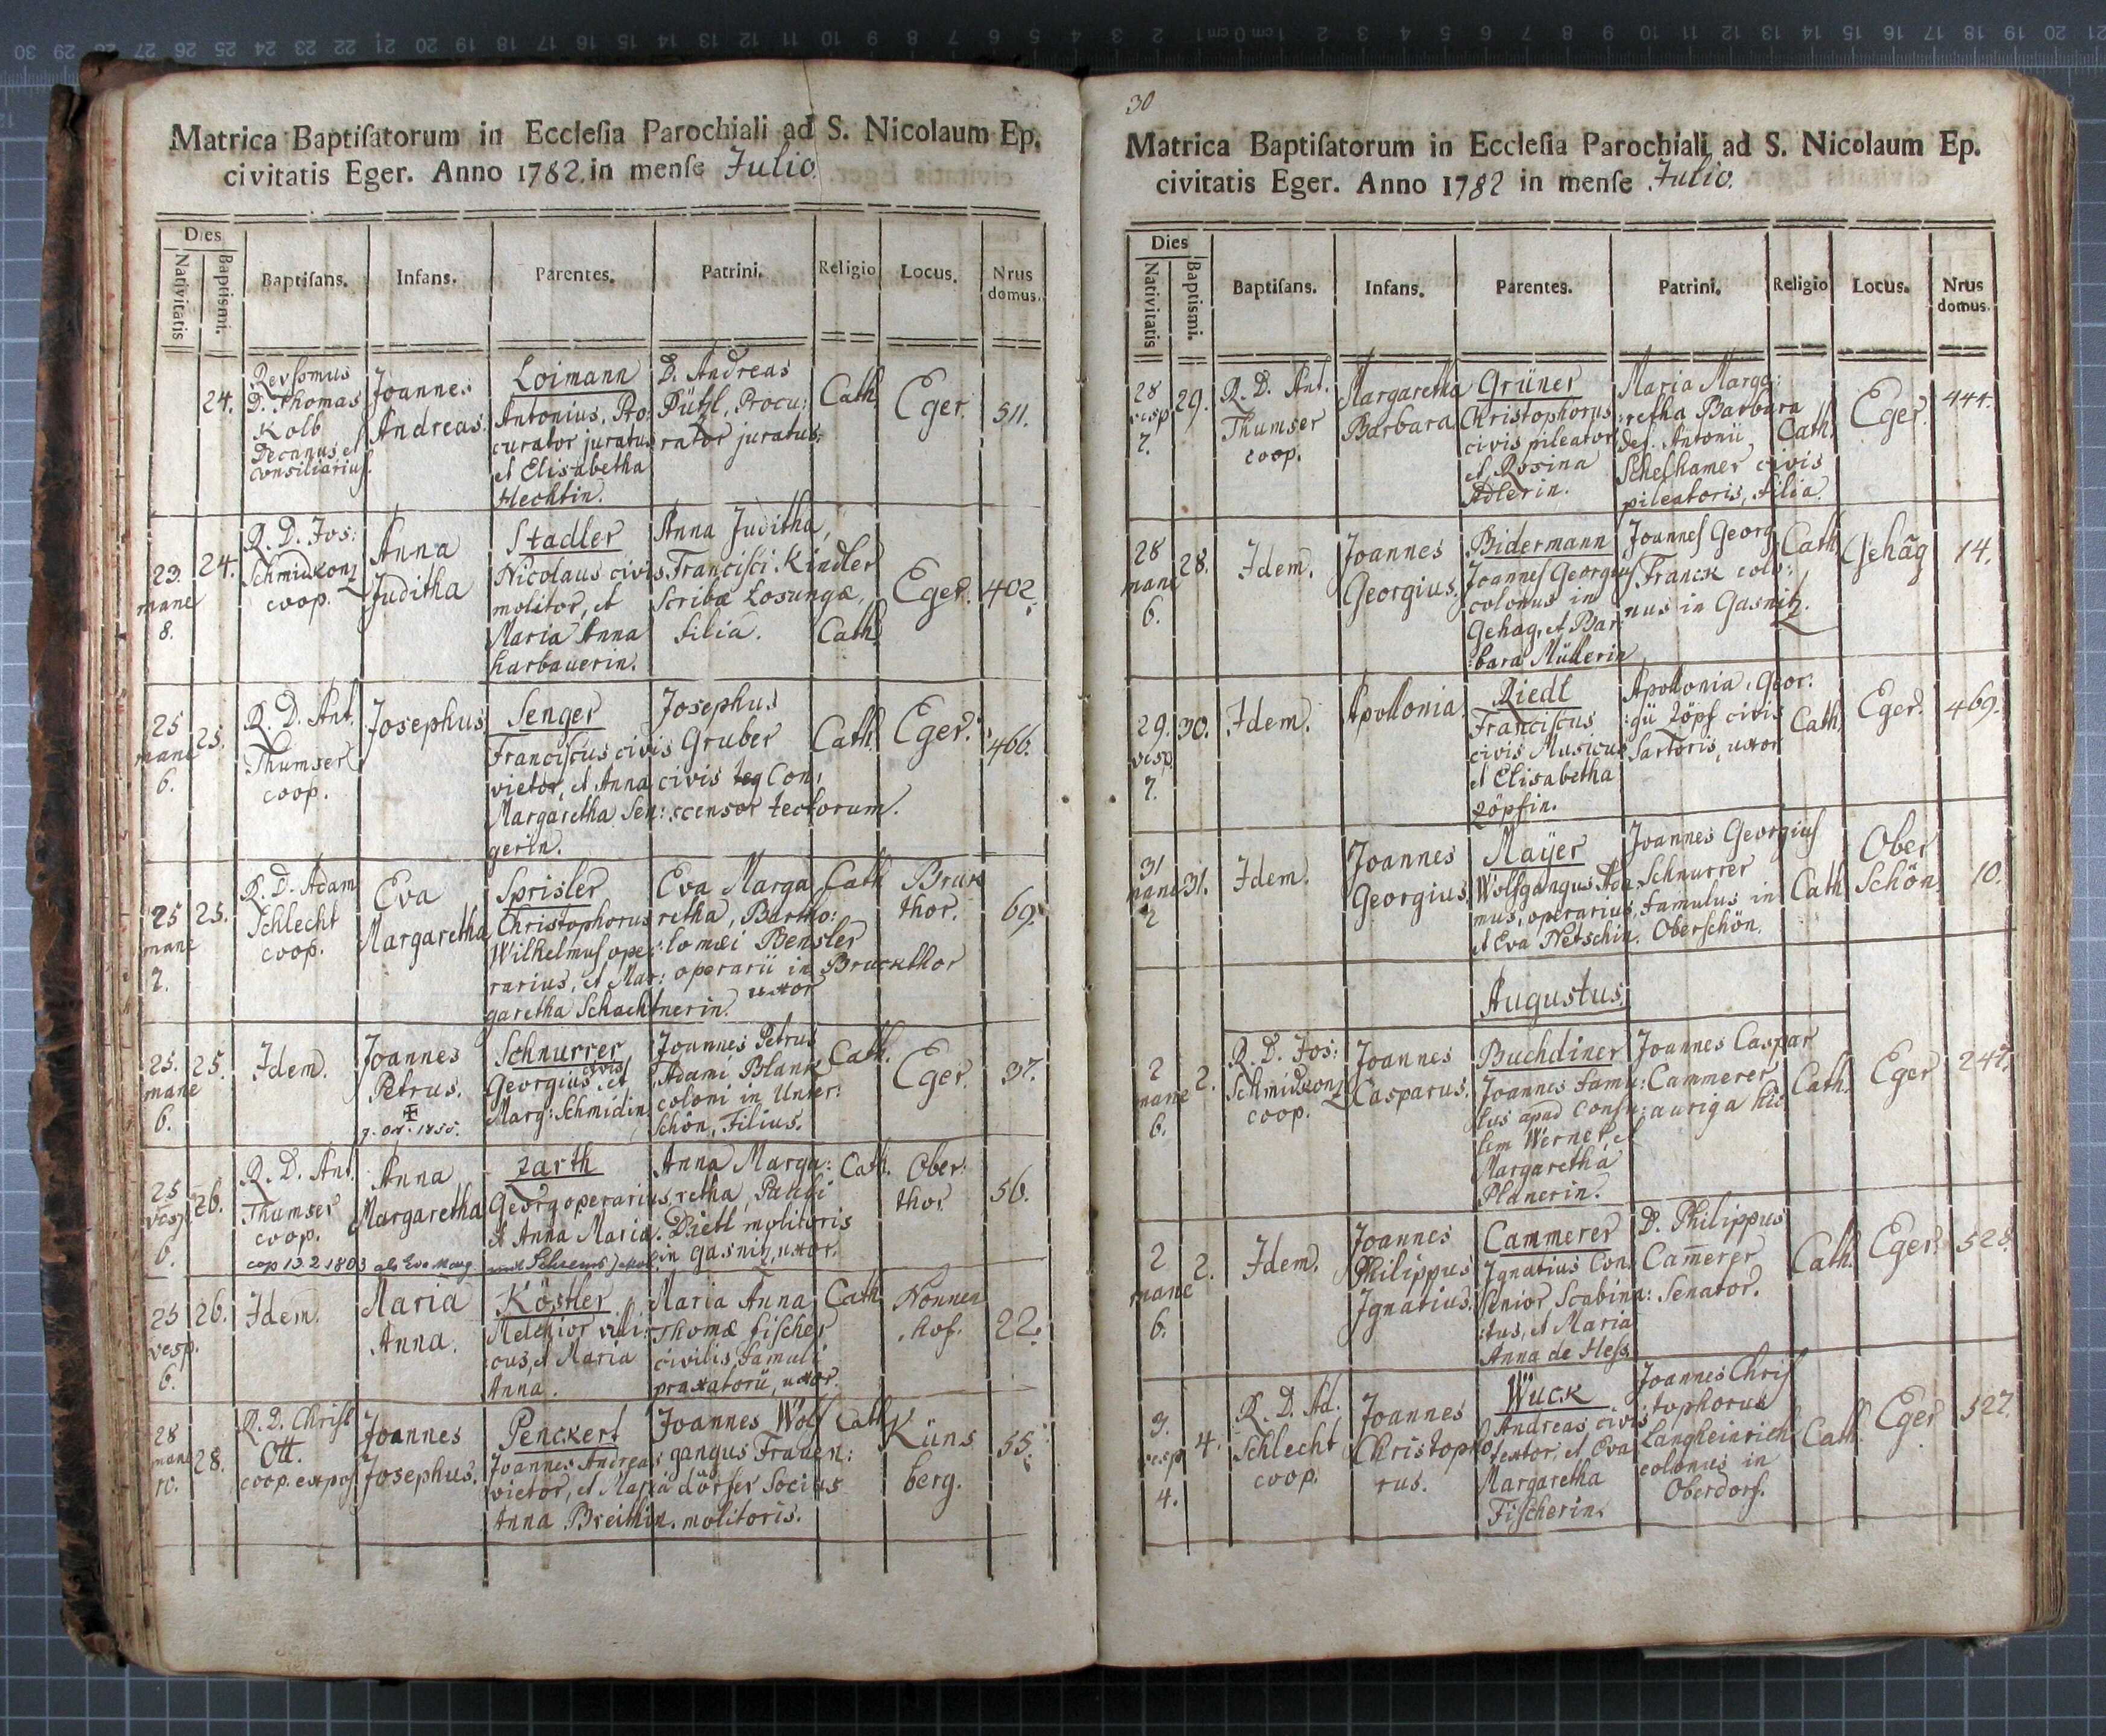 Matrica Baptiſatorum in Eccleſia Parochiali ad S. Nicolaum Ep.
civitatis Eger. Anno 1782. in menſe Julio.
Dies
Nativitatis
Baptismi.
Baptiſans.
Infans.
Parentes.
Patrini.
Religio
Locus.
Nrus
domus.
24.
Revſsmus
D. Thomas
Kolb
Decanus et
Consiliarius.
Joannes
Andreas.
Loimann
Antonius, Pro:
curator juratus
et Elisabetha
Hechtin.
D. Andreas
Pützl, Procu:
rator juratus.
Cath.
Eger.
511.
23.
mane
8.
24.
R. D. Jos:
Schmidkonz
coop.
Anna
Juditha
Stadler
Nicolaus civis
molitor, et
Maria Anna
Harbauerin.
Anna Juditha,
Franciſci Kindler
Scribæ Losungæ,
filia.
Cath.
Eger.
402.
25
mane
6.
25.
R. D. Ant.
Thumser
coop.
Josephus
Senger
Franciſcus civis
vietor, et Anna
Margaretha Sen:
gerin.
Josephus
Gruber
civis Con:
scensor tectorum.
Cath.
Eger.
466.
25
mane
2.
25.
R. D. Adam
Schlecht
coop.
Eva
Margaretha
Sprisler
Christophorus
Wilhelmus ope:
rarius, et Mar:
garetha Schachtnerin.
Eva Marga
retha, Bartho:
lomæi Bensler
operarii in Bruckthor
uxor
Cath
Bruk
thor.
69.
25.
mane
6.
25.
Idem.
Joannes
Petrus.
Schnurrer
Georgius civis, et
Marg: Schmidin.
Joannes Petrus
Adami Blank
coloni in Unter:
Schön, Filius.
Cath.
Eger.
37.
25
vesp.
6.
26.
R. D. Ant.
Thumser
coop.
Anna
Margaretha
Zarth
Georg operarius,
et Anna Maria.
Anna Marga:
retha, Pauli
Dietl molitoris
in Gasnitz, uxor.
Cath.
Ober:
thor
56.
cop 13.2.1803 als Eva Marg.
25
vesp.
6.
26.
Idem.
Maria
Anna.
Köstler
Melchior villi:
cus, et Maria
Anna.
Maria Anna
Thomæ Fischer
civilis famuli
praxatorii, uxor.
Cath
Nonnen
hof.
22.
28
mane
10.
28.
R. D. Christ
Ott.
coop. expos
Joannes
Josephus.
Penckert
Joannes Andreas
vietor, et Maria
Anna Breithin.
Joannes Wolf
gangus Frauen:
dörfer Socius
molitoris.
Cath.
Küns
berg.
55.
30
Matrica Baptiſatorum in Eccleſia Parochiali ad S. Nicolaum Ep.
civitatis Eger. Anno 1782 in menſe Julio.
Dies
Nativitatis
Baptismi.
Baptiſans.
Infans.
Parentes.
Patrini.
Religio
Locus.
Nrus
domus.
28
vesp
7.
29.
R. D. Ant.
Thumser
coop.
Margaretha
Barbara
Grüner
Christophorus
civis pileator
et Rosina
Adlerin.
Maria Marga:
retha Barbara
def. Antonii
Schelhamer civis
pileatoris, filia.
Cath.
Eger.
444.
28
mane
6.
28.
Idem.
Joannes
Georgius.
Bidermann
Joannes Georgius
colonus in
Gehag, et Bar:
bara Müllerin
Joannes Georg
Franck colo:
nus in Gasnitz.
Cath.
Gehäg
14.
29.
vesp
7.
30.
Idem.
Apollonia.
Riedl
Franciscus
civis Musicus
et Elisabetha
Zöpfin.
Apollonia, Geor:
gii Zöpf civis
Sartoris, uxor
Cath.
Eger.
469.
31
mane
2
31.
Idem.
Joannes
Georgius.
Mayer
Wolfgangus Ada
mus, operarius,
et Eva Netschin.
Joannes Georgius
Schnurrer
famulus in
Oberschön.
Cath.
Ober
Schön.
10.
Augustus.
2
mane
6.
2.
R. D. Jos:
Schmidkonz
coop.
Joannes
Casparus.
Buchdiner
Joannes famu:
lus apud Consu:
lem Werner, et
Margaretha
Planerin.
Joannes Caspar
Cammerer
auriga hic
Cath.
Eger
247.
2
mane
6.
2.
Idem.
Joannes
Philippus
Ignatius.
Cammerer
Ignatius Con:
senior Scabina:
tus, et Maria
Anna de Hess.
D. Philippus
Cam̄erer
Senator.
Cath.
Eger.
528.
3.
vesp
4.
4.
R. D. Ad.
Schlecht
coop.
Joannes
Christopho
rus.
Wuck
Andreas civis
textor, et Eva
Margaretha
Fischerin.
Joannes Chris
tophorus
Langheinrich
colonus in
Oberdorf.
Cath.
Eger
527.